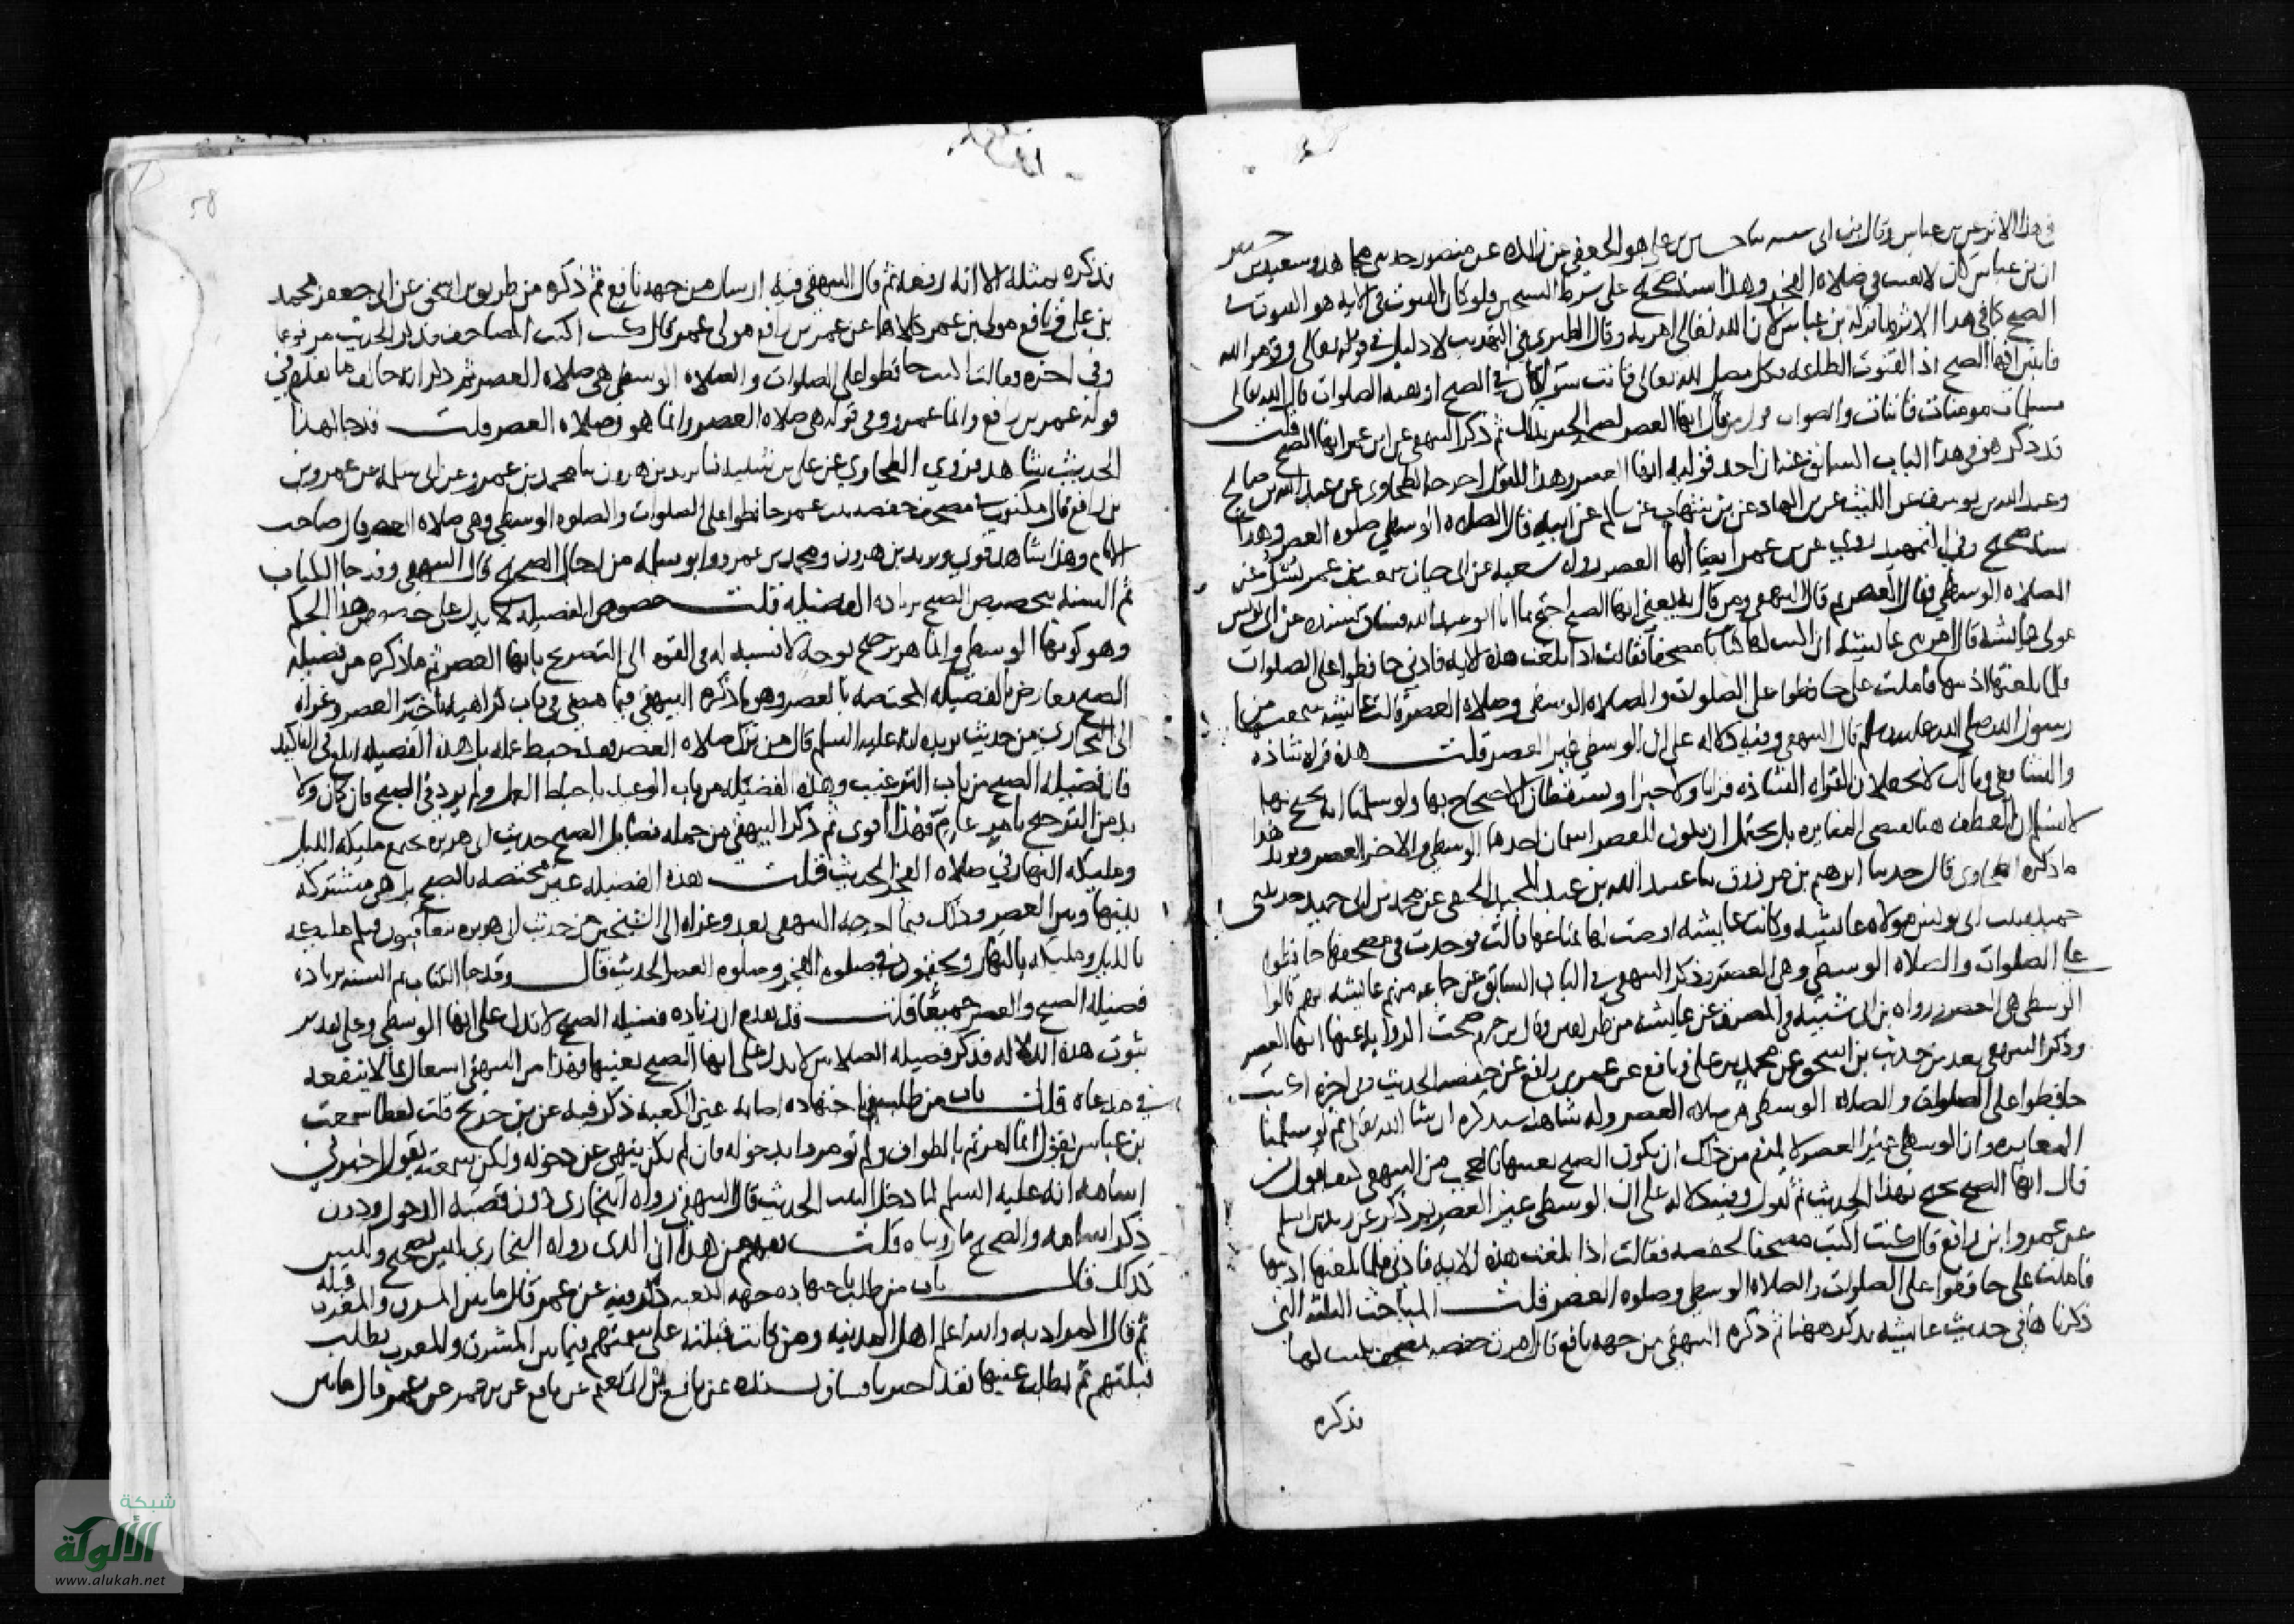 في هذا الاثر عن بن عباس وقال بن ابي شيبه ثنا حسين بن علي هو الجعفي عن زائده عن منصور حدثني مجاهد وسعيد بن جبير
ان بن عباس كان لا يقنت في صلاه الفجر وهذا سند صحيح على شرط الشيخين ولو كان القنوت في الآيه هو القنوت في
الصبح كما في هذا الاثر لما تركه بن عباس لان الله تعالى امر به وقال الطبري في التهذيب لا دليل في قوله تعالى وقوموا لله
قانتين انها الصبح اذ القنوت الطاعه فكل مصل لله تعالى قانت سواء كان في الصبح او بقيه الصلوات قال الله تعالى
مسلمات مومنات قانتات والصواب قول من قال انها العصر لصحه الخبر بذلك ثم ذكر البيهقي عن ابن عمر انها الصبح قلت
قد ذكر هو في هذا الباب السابق عنه ان احد قوليه انها العصر وهذا القول اخرجه الطحاوي عن عبد الله بن صالح
وعبد الله بن يوسف عن الليث عن بن الهاد عن بن شهاب عن سالم عن ابيه قال الصلاه الوسطى صلوه العصر وهذا
سند صحيح وفي التمهيد روي عن بن عمر ايضا انها العصر رواه سعيد عن ابي حيان سمعت بن عمر سئل عن
الصلاه الوسطى فقال العصر ثم قال البيهقي ومن قال به يعني انها الصبح احتج بما انا ابو عبد الله فساق بسنده عن ابي يونس
مولى عايشه قال امرتني عايشه ان اكتب لها مصحفا فقالت اذا بلغت هذه الايه فاذني حافظوا على الصلوات
فلما بلغتها اذنتها فاملت علي حافظوا على الصلوات والصلاه الوسطى وصلاه العصر قالت عايشه سمعتها من
رسول الله صلى الله عليه وسلم قال البيهقي وفيه دلاله على ان الوسطى غير العصر قلت هذه قراه شاذه
والشافعي ومالك لا يجعلان القراه الشاذه قرانا ولا خبرا ويسقطان الاحتجاج بها ولو سلمنا انه يحتج بها
لا نسلم ان العطف هنا يقتضي المغايره بل يحتمل ان يكون للعصر اسمان احدهما الوسطى والاخر العصر ويويد هذا
ما ذكره الطحاوي قال حدثنا ابرهيم بن مرزوق ثنا عبيد الله بن عبد المجيد الحنفي عن محمد بن ابي حميد حدثتني
حميده بنت ابي يونس مولاه عايشه وكانت عايشه اوصت لها بمتاعها قالت فوجدت في مصحفها حافظوا
على الصلوات والصلاه الوسطى وهي العصر وذكر البيهقي في الباب السابق عن جماعه منهم عايشه انهم قالوا
الوسطى هي العصر ورواه بن ابي شيبه في المصنف عن عايشه من طريقين وقال بن حزم صحت الروايه عنها انها العصر
وذكر البيهقي بعد من حديث بن اسحق عن محمد بن علي ونافع عن عمر بن رافع عن حفصه الحديث وفي اخره اكتب
حافظوا على الصلوات والصلاه الوسطى هي صلاه العصر وله شاهد سنذكره ان شا الله تعالى ثم لو سلمنا
المغايره وان الوسطى غير العصر لا يلزم من ذلك ان يكون الصبح بعينها فالعجب من البيهقي كيف يقول ان من
قال انها الصبح يحتج بهذا الحديث ثم يقول وفيه دلاله على ان الوسطى غير العصر ثم ذكر عن زيد بن اسلم
عن عمرو ابن رافع قال كنت اكتب مصحفا لحفصه فقالت اذا بلغت هذه الايه فاذني فلما بلغتها اذنتها
فاملت علي حافظوا على الصلوات والصلاه الوسطى وصلوه العصر قلت المباحث الثلثه التي
ذكرناها في حديث عايشه تذكر ههنا ثم ذكره البيهقي من جهه نافع قال امرت حفصه بمصحف يكتب لها
فذكره
58
فذكره بمثله الا انه رفعه ثم قال البيهقي فيه ارسال من جهه نافع ثم ذكره من طريق بن اسحق عن ابي جعفر محمد
بن علي ونافع مولى بن عمر كلاهما عن عمر بن رافع مولى عمر قال كنت اكتب المصاحف فذكر الحديث مرفوعا
وفي اخره فقالت اكتب حافظوا على الصلوات والصلاه الوسطى هي صلاه العصر ثم ذكر انه خالف ما تقدم في
قوله عمر بن رافع وانما عمرو وفي قوله هي صلاه العصر وانما هو وصلاه العصر قلت قد جا لهذا
الحديث شاهد فروي الطحاوي عن علي بن شيبه ثنا يزيد بن هرون ثنا محمد بن عمرو عن ابي سلمه عن عمرو بن
بن رافع قال مكتوب في مصحف حفصه بنت عمر حافظوا على الصلوات والصلوه الوسطى وهي صلاه العصر قال صاحب
الامام وهذا شاهد قوي ويزيد بن هرون ومحمد بن عمرو وابو سلمه من رجال الصحيح قال البيهقي وقد جا الكتاب
ثم السنه بتخصيص الصبح بزياده الفضيله قلت خصوص الفضيله لا يدل على خصوص هذا الحكم
وهو كونها الوسطى وانما هو ترجيح بوجه لا نسبه له في القوه الى التصريح بانها العصر ثم ما ذكره من فضيله
الصبح معارض بالفضيله المختصه بالعصر وهو ما ذكره البيهقي فيما مضى في باب كراهيه تأخير العصر وعزاه
الى البخاري من حديث بريده انه عليه السلم قال من ترك صلاه العصر فقد حبط عمله بل هذه الفضيله ابلغ في التاكيد
فان فضيله الصبح من باب الترغيب وهذه الفضيله من باب الوعيد باحباط العمل ولم يرد في الصبح فان كان ولا
بد من الترجيح بامر عام فهذا اقوى ثم ذكر البيهقي من جمله فضايل الصبح حديث ابي هريره يجتمع مليكه الليل
ومليكه النهار في صلاه الفجر الحديث قلت هذه الفضيله غير مختصه بالصبح بل هي مشتركه
بينها وبين العصر وذلك فيما اخرجه البيهقي بعد وعزاه الى الشيخين من حديث ابي هريره يتعاقبون فيكم مليكه
بالليل ومليكه بالنهار ويجتمعون في صلوه الفجر وصلوه العصر الحديث قال وقد جا الكتاب ثم السنه بزياده
فضيله الصبح والعصر جميعا قلت قد تقدم ان زياده فضيله الصبح لا تدل على انها الوسطى وعلى تقدير
ثبوت هذه الدلاله فذكر فضيله الصلاتين لا يدل على انها الصبح بعينها فهذا من البيهقي اشتغال بما لا ينفعه
في مدعاه قال باب من طلب باجتهاده اصابه عين الكعبه ذكر فيه عن بن جريج قلت لعطا سمعت
بن عباس يقول انما امرتم بالطواف ولم تومروا بدخوله قال لم يكن ينهى عن دخوله ولكن سمعته يقول اخبرني
اسامه انه عليه السلم لما دخل البيت الحديث قال البيهقي رواه البخاري دون قصه الدخول ودون
ذكر اسامه والصحيح ما رويناه قلت يفهم من هذا ان الذي رواه البخاري ليس بصحيح وليس
كذلك قال باب من طلب باجتهاده جهه الكعبه ذكر فيه عن عمر قال ما بين المشرق والمغرب قبله
ثم قال المراد به والله اعلم اهل المدينه ومن كانت قبلته على سمتهم فيما بين المشرق والمغرب يطلب
قبلتهم ثم يطلب عينها فقد اخبرنا فساق بسنده عن نافع بن ابي نعيم عن نافع عن بن عمر عن عمر قال ما بين
شبكة
الألوكة
www.alukah.net